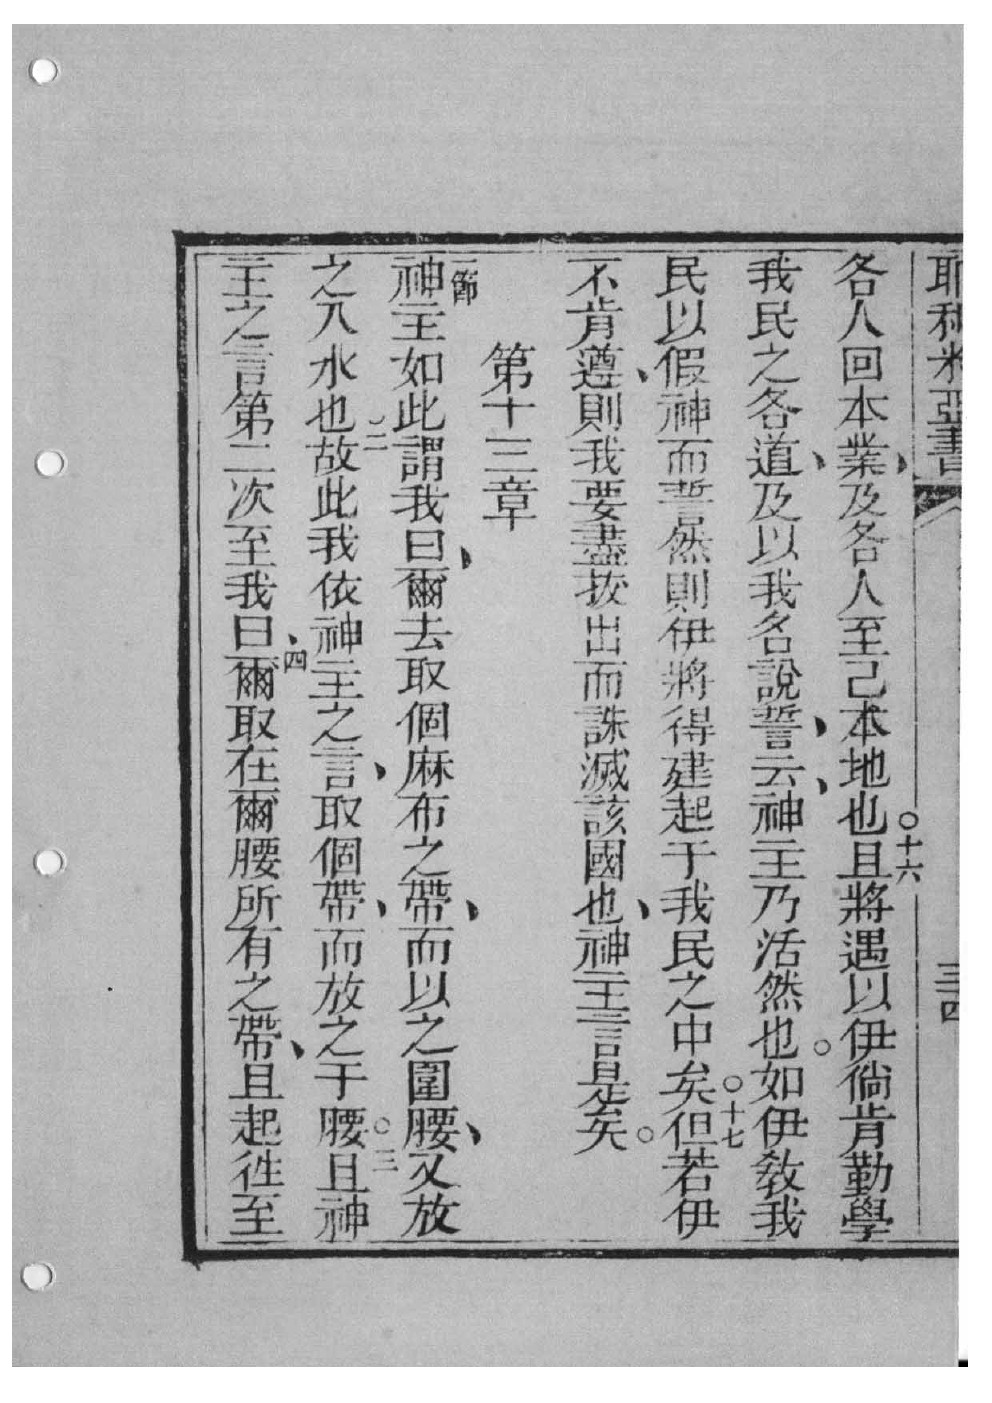 耶利米亞書 三四
各人回本業、及各人至己本地也。十六且將遇以伊倘肯勤學
我民之各道、及以我名說誓、云、神主乃活然也。如伊敎我
民以假神而誓然則伊將得建起于我民之中矣。十七但若伊
不肯遵、則我要盡拔出而誅滅該國也、神主言是矣。
第十三章
一節神主如此謂我曰、爾去取個麻布之帶、而以之圍腰、又放
之入水也。二故此我依神主之言、取個帶、而放之于腰。三且神
主之言第二次至我曰、四爾取在爾腰所有之帶、且起徃至